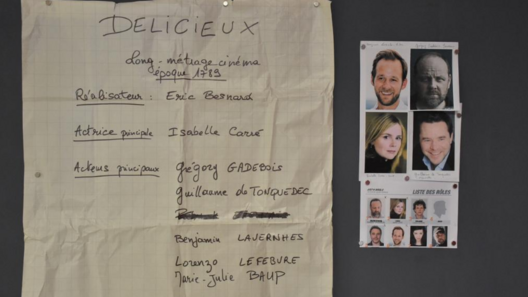 DELICIEUX
Long-métrage cinéma
époque 1789
Réalisateur : Eric Besnard
Actrice principale Isabelle Carré
Acteurs principaux Grégory GADEBOIS
Guillaume de TONQUEDEC
Benjamin LAVERNHES
Lorenzo LEFEBURE
Marie-Julie BAUP
LISTE DES RÔLES